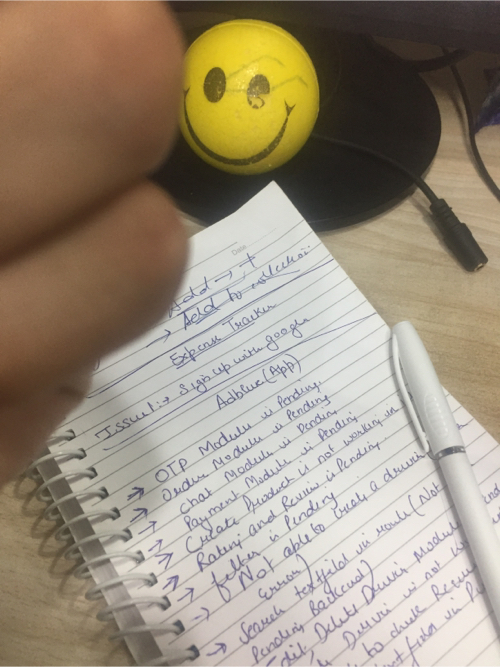 Date
Add → +
→ Add to collection
Expense Tracker
Issue 1:→ Sign up with google
Adblue (App)
→ OTP Module is Pending.
→ Order Module is Pending
→ Chat Module is Pending
→ Payment Module is Pending
→ Create Product is not working in
→ Rating and Review is Pending
→ filter is Pending
→ Not able to create a driver
Error)
→ Search textfield in route (Not
Pending Backend)
→ Edit Delete Driver Module
Driver is not
to check
in